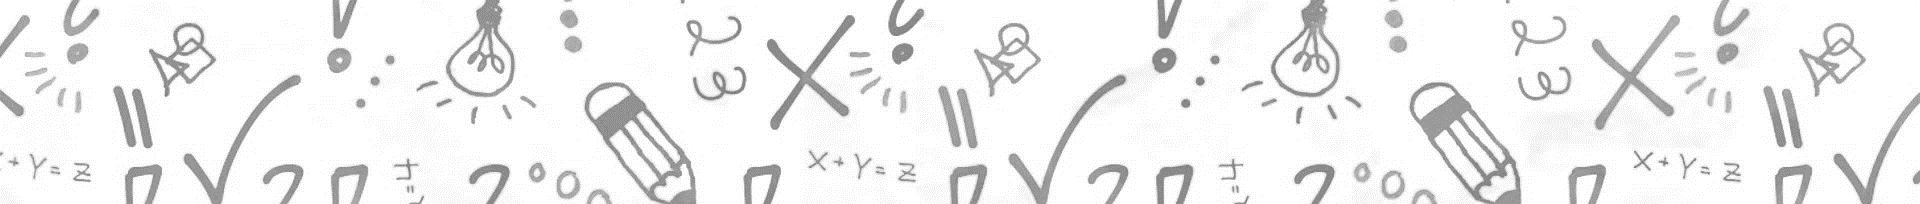 + Y = Z
X + Y = Z
X + Y = Z